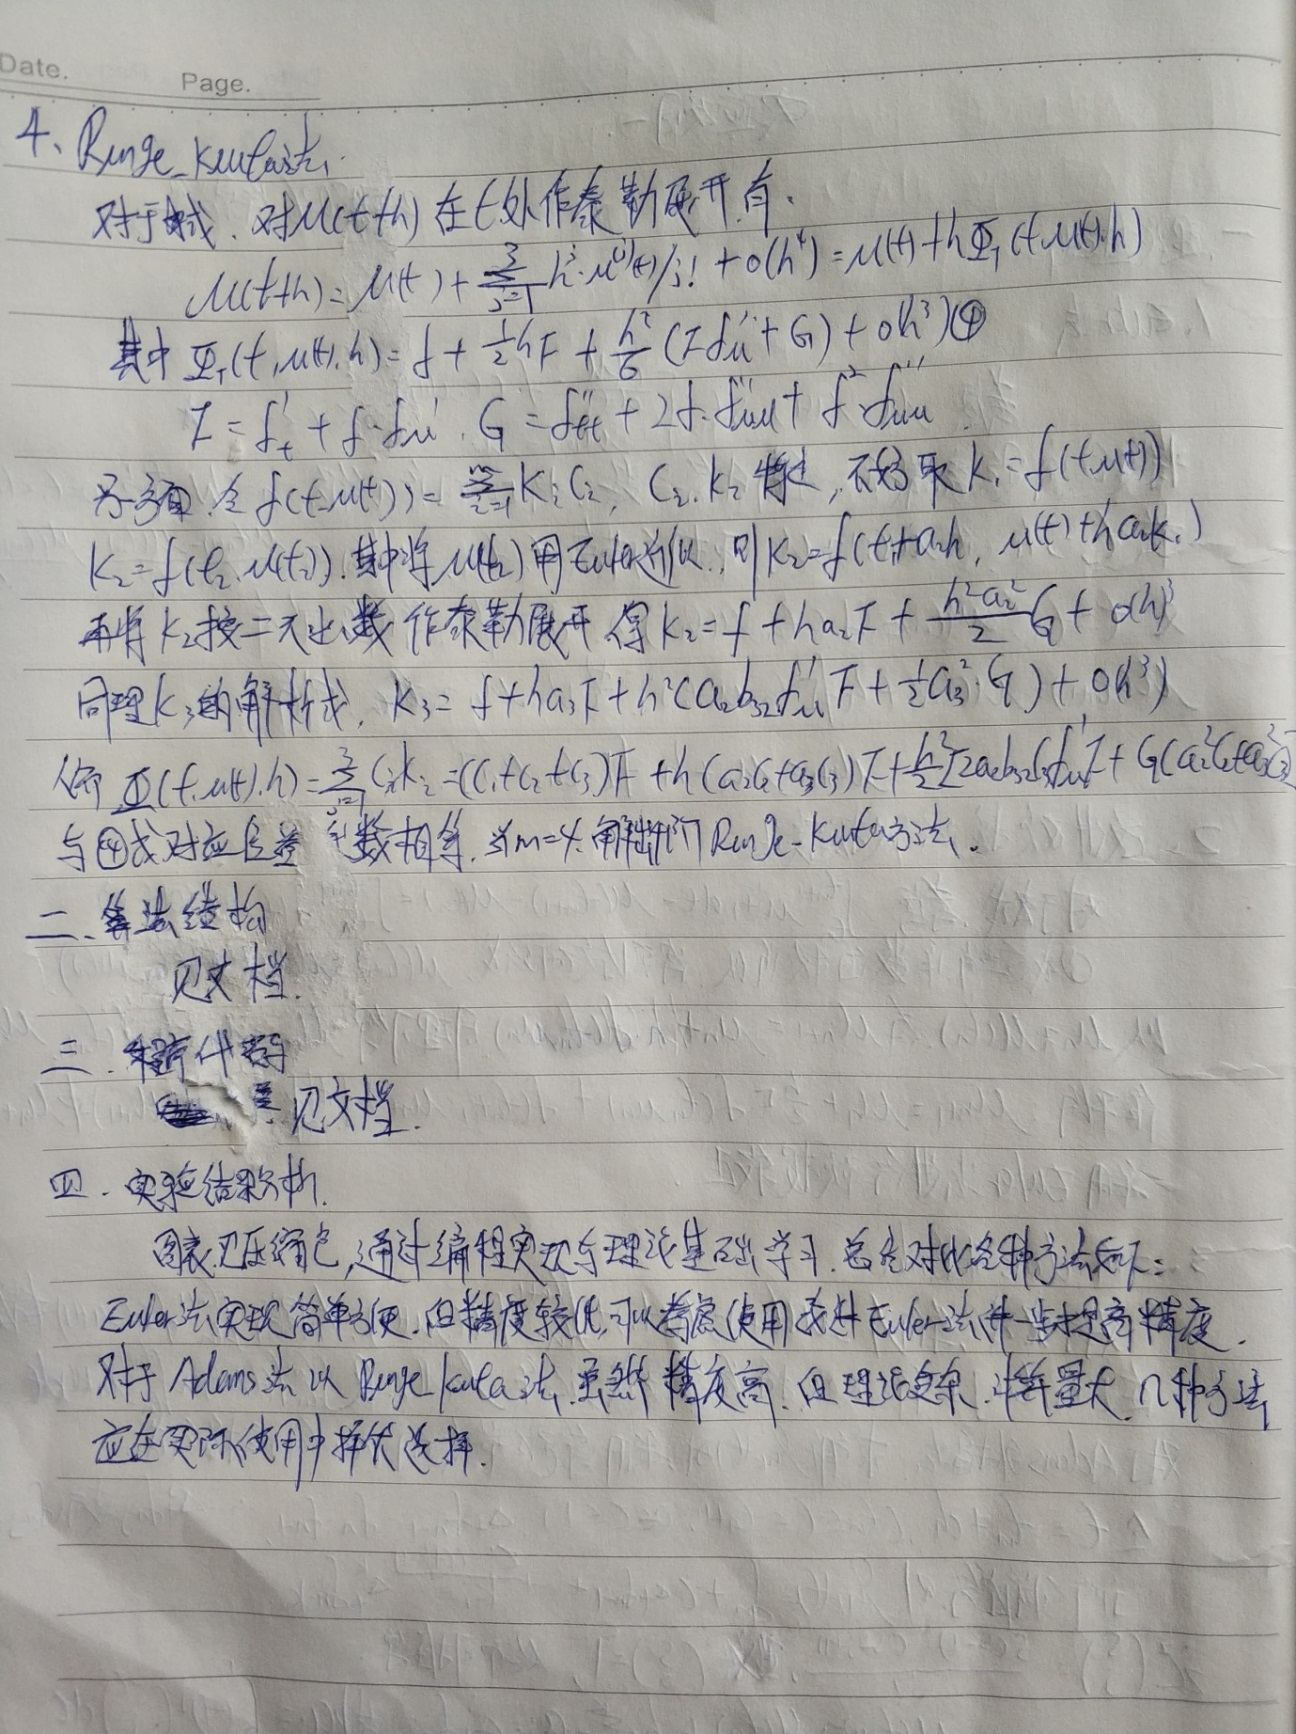 Date.
Page.
4、Runge_Kuta法.
对于 式. 对u(t+h)在t处作泰勒展开.有.
u(t+h)=u(t)+∑_{j=1}^{3} h^j·u^{(j)}(t)/j! +O(h⁴)=u(t)+hΦ_T(t,u(t),h)
其中 Φ_T(t,u(t),h)=f+½hF+h²/6(Ff'_u+G)+O(h³)④
F=f'_t+f·f'_u. G=f''_tt+2f·f''_tu+f²·f''_uu
另 . 令f(t,u(t))= K_i C_i, C_i,K_i 待定,不妨取K₁=f(t,u(t))
K₂=f(t₂,u(t₂)).其中将u(t₂)用Euler近似.则K₂=f(t+a₂h, u(t)+ha₂k₁)
再将K₂按二元 数作泰勒展开得K₂=f+ha₂F+h²a₂²/2 G+O(h)³
同理K₃的解析式, K₃=f+ha₃F+h²(a₂b₃₂f'_uF+½a₃²·G)+O(h³)
Φ(t,u(t),h)=∑_{i=1}^{3} C_iK_i=(C₁+C₂+C₃)F+h(a₂C₂+a₃C₃)F+h²/2[2a₂b₃₂C₃f'_uF+G(a₂²C₂+a₃²C₃)]
与④式对应 数相等. 当m=4.解出 阶Runge-Kuta方法.
二、算法结构
见文档.
三.程序代码
见文档.
四.实验结果分析.
图表见压缩包,通过编程实现与理论基础学习.总结对比各种方法如下:
Euler法实现简单方便.但精度较低.可以考虑使用改进Euler法进一步提高精度.
对于Adams法以 Runge_kuta法.虽然精度高.但理论复杂.计算量大.几种方法
应在实际使用中择优选择.